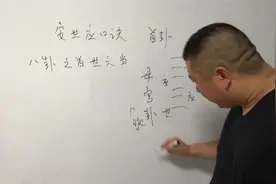 安世应口诀 首卦
八卦之首世六当
宫 应
卦 世